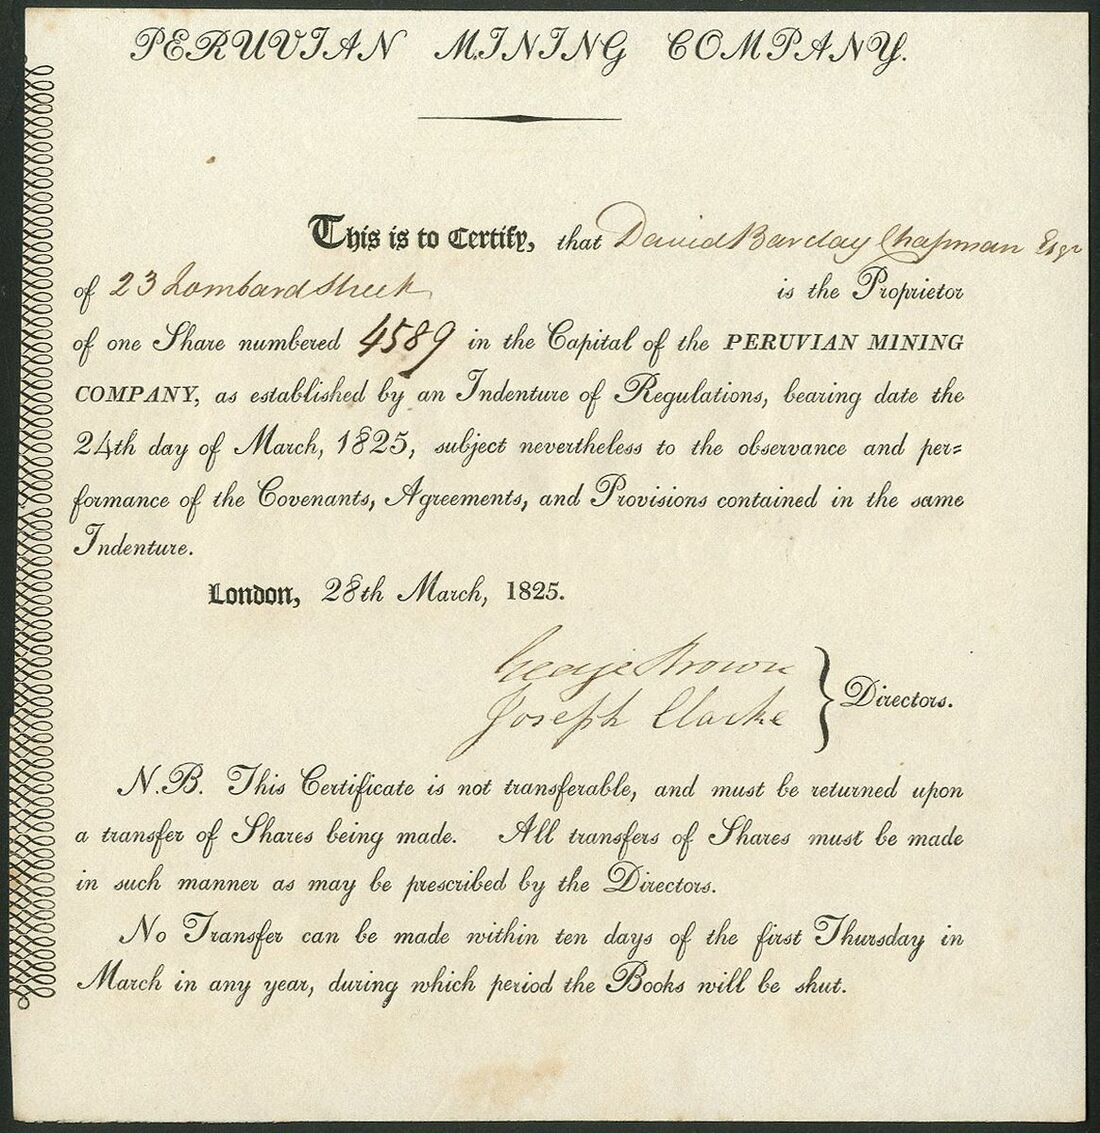 PERUVIAN MINING COMPANY.
This is to Certify, that David Barclay Chapman Esqr
of 23 Lombard Street is the Proprietor
of one Share numbered 4589 in the Capital of the PERUVIAN MINING
COMPANY, as established by an Indenture of Regulations, bearing date the
24th day of March, 1825, subject nevertheless to the observance and per=
formance of the Covenants, Agreements, and Provisions contained in the same
Indenture.
London, 28th March, 1825.
George Brown
Joseph Clarke } Directors.
N.B. This Certificate is not transferable, and must be returned upon
a transfer of Shares being made. All transfers of Shares must be made
in such manner as may be prescribed by the Directors.
No Transfer can be made within ten days of the first Thursday in
March in any year, during which period the Books will be shut.